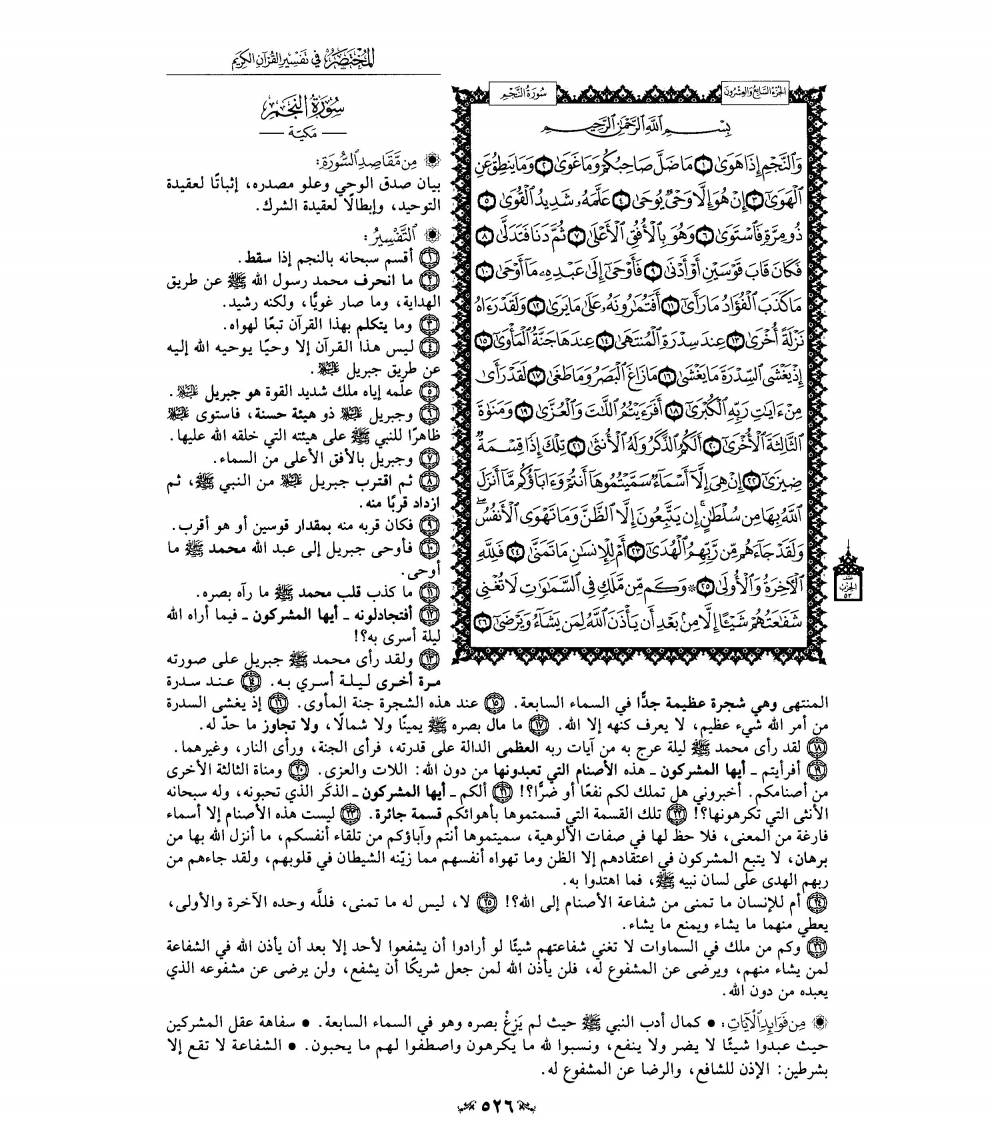 المختصر في تفسير القرآن الكريم
سورة النجم
الجزء السابع والعشرون
بِسْمِ اللَّهِ الرَّحْمَٰنِ الرَّحِيمِ
وَالنَّجْمِ إِذَا هَوَىٰ ١ مَا ضَلَّ صَاحِبُكُمْ وَمَا غَوَىٰ ٢ وَمَا يَنطِقُ عَنِ
الْهَوَىٰ ٣ إِنْ هُوَ إِلَّا وَحْيٌ يُوحَىٰ ٤ عَلَّمَهُ شَدِيدُ الْقُوَىٰ ٥
ذُو مِرَّةٍ فَاسْتَوَىٰ ٦ وَهُوَ بِالْأُفُقِ الْأَعْلَىٰ ٧ ثُمَّ دَنَا فَتَدَلَّىٰ ٨
فَكَانَ قَابَ قَوْسَيْنِ أَوْ أَدْنَىٰ ٩ فَأَوْحَىٰ إِلَىٰ عَبْدِهِ مَا أَوْحَىٰ ١٠
مَا كَذَبَ الْفُؤَادُ مَا رَأَىٰ ١١ أَفَتُمَارُونَهُ عَلَىٰ مَا يَرَىٰ ١٢ وَلَقَدْ رَءَاهُ
نَزْلَةً أُخْرَىٰ ١٣ عِندَ سِدْرَةِ الْمُنتَهَىٰ ١٤ عِندَهَا جَنَّةُ الْمَأْوَىٰ ١٥
إِذْ يَغْشَى السِّدْرَةَ مَا يَغْشَىٰ ١٦ مَا زَاغَ الْبَصَرُ وَمَا طَغَىٰ ١٧ لَقَدْ رَأَىٰ
مِنْ ءَايَٰتِ رَبِّهِ الْكُبْرَىٰ ١٨ أَفَرَءَيْتُمُ اللَّٰتَ وَالْعُزَّىٰ ١٩ وَمَنَوٰةَ
الثَّالِثَةَ الْأُخْرَىٰ ٢٠ أَلَكُمُ الذَّكَرُ وَلَهُ الْأُنثَىٰ ٢١ تِلْكَ إِذًا قِسْمَةٌ
ضِيزَىٰ ٢٢ إِنْ هِيَ إِلَّا أَسْمَاءٌ سَمَّيْتُمُوهَا أَنتُمْ وَءَابَاؤُكُم مَّا أَنزَلَ
اللَّهُ بِهَا مِن سُلْطَٰنٍ ۚ إِن يَتَّبِعُونَ إِلَّا الظَّنَّ وَمَا تَهْوَى الْأَنفُسُ ۖ
وَلَقَدْ جَاءَهُم مِّن رَّبِّهِمُ الْهُدَىٰ ٢٣ أَمْ لِلْإِنسَٰنِ مَا تَمَنَّىٰ ٢٤ فَلِلَّهِ
الْآخِرَةُ وَالْأُولَىٰ ٢٥ ۞ وَكَم مِّن مَّلَكٍ فِي السَّمَٰوَٰتِ لَا تُغْنِي
شَفَٰعَتُهُمْ شَيْئًا إِلَّا مِن بَعْدِ أَن يَأْذَنَ اللَّهُ لِمَن يَشَاءُ وَيَرْضَىٰ ٢٦
الحزب
٥٣
سورة النجم
— مكية —
من مقاصد السورة:
بيان صدق الوحي وعلو مصدره، إثباتًا لعقيدة
التوحيد، وإبطالًا لعقيدة الشرك.
التفسير:
١ أقسم سبحانه بالنجم إذا سقط.
٢ ما انحرف محمد رسول الله ﷺ عن طريق
الهداية، وما صار غويًّا، ولكنه رشيد.
٣ وما يتكلم بهذا القرآن تبعًا لهواه.
٤ ليس هذا القرآن إلا وحيًا يوحيه الله إليه
عن طريق جبريل عليه السلام.
٥ علّمه إياه ملك شديد القوة هو جبريل عليه السلام.
٦ وجبريل عليه السلام ذو هيئة حسنة، فاستوى عليه السلام
ظاهرًا للنبي ﷺ على هيئته التي خلقه الله عليها.
٧ وجبريل بالأفق الأعلى من السماء.
٨ ثم اقترب جبريل عليه السلام من النبي ﷺ، ثم
ازداد قربًا منه.
٩ فكان قربه منه بمقدار قوسين أو هو أقرب.
١٠ فأوحى جبريل إلى عبد الله محمد ﷺ ما
أوحى.
١١ ما كذب قلب محمد ﷺ ما رآه بصره.
١٢ أفتجادلونه ـ أيها المشركون ـ فيما أراه الله
ليلة أسرى به؟!
١٣ ولقد رأى محمد ﷺ جبريل على صورته
مرة أخرى ليلة أسري به. ١٤ عند سدرة
المنتهى وهي شجرة عظيمة جدًّا في السماء السابعة. ١٥ عند هذه الشجرة جنة المأوى. ١٦ إذ يغشى السدرة
من أمر الله شيء عظيم، لا يعرف كنهه إلا الله. ١٧ ما مال بصره ﷺ يمينًا ولا شمالًا، ولا تجاوز ما حدّ له.
١٨ لقد رأى محمد ﷺ ليلة عرج به من آيات ربه العظمى الدالة على قدرته، فرأى الجنة، ورأى النار، وغيرهما.
١٩ أفرأيتم ـ أيها المشركون ـ هذه الأصنام التي تعبدونها من دون الله: اللات والعزى. ٢٠ ومناة الثالثة الأخرى
من أصنامكم. أخبروني هل تملك لكم نفعًا أو ضرًّا؟! ٢١ ألكم ـ أيها المشركون ـ الذكَر الذي تحبونه، وله سبحانه
الأنثى التي تكرهونها؟! ٢٢ تلك القسمة التي قسمتموها بأهوائكم قسمة جائرة. ٢٣ ليست هذه الأصنام إلا أسماء
فارغة من المعنى، فلا حظ لها في صفات الألوهية، سميتموها أنتم وآباؤكم من تلقاء أنفسكم، ما أنزل الله بها من
برهان، لا يتبع المشركون في اعتقادهم إلا الظن وما تهواه أنفسهم مما زيّنه الشيطان في قلوبهم، ولقد جاءهم من
ربهم الهدى على لسان نبيه ﷺ، فما اهتدوا به.
٢٤ أم للإنسان ما تمنى من شفاعة الأصنام إلى الله؟! ٢٥ لا، ليس له ما تمنى، فللَّه وحده الآخرة والأولى،
يعطي منهما ما يشاء ويمنع ما يشاء.
٢٦ وكم من ملك في السماوات لا تغني شفاعتهم شيئًا لو أرادوا أن يشفعوا لأحد إلا بعد أن يأذن الله في الشفاعة
لمن يشاء منهم، ويرضى عن المشفوع له، فلن يأذن الله لمن جعل شريكًا أن يشفع، ولن يرضى عن مشفوعه الذي
يعبده من دون الله.
من فوائد الآيات: • كمال أدب النبي ﷺ حيث لم يَزِغْ بصره وهو في السماء السابعة. • سفاهة عقل المشركين
حيث عبدوا شيئًا لا يضر ولا ينفع، ونسبوا لله ما يكرهون واصطفوا لهم ما يحبون. • الشفاعة لا تقع إلا
بشرطين: الإذن للشافع، والرضا عن المشفوع له.
٥٢٦